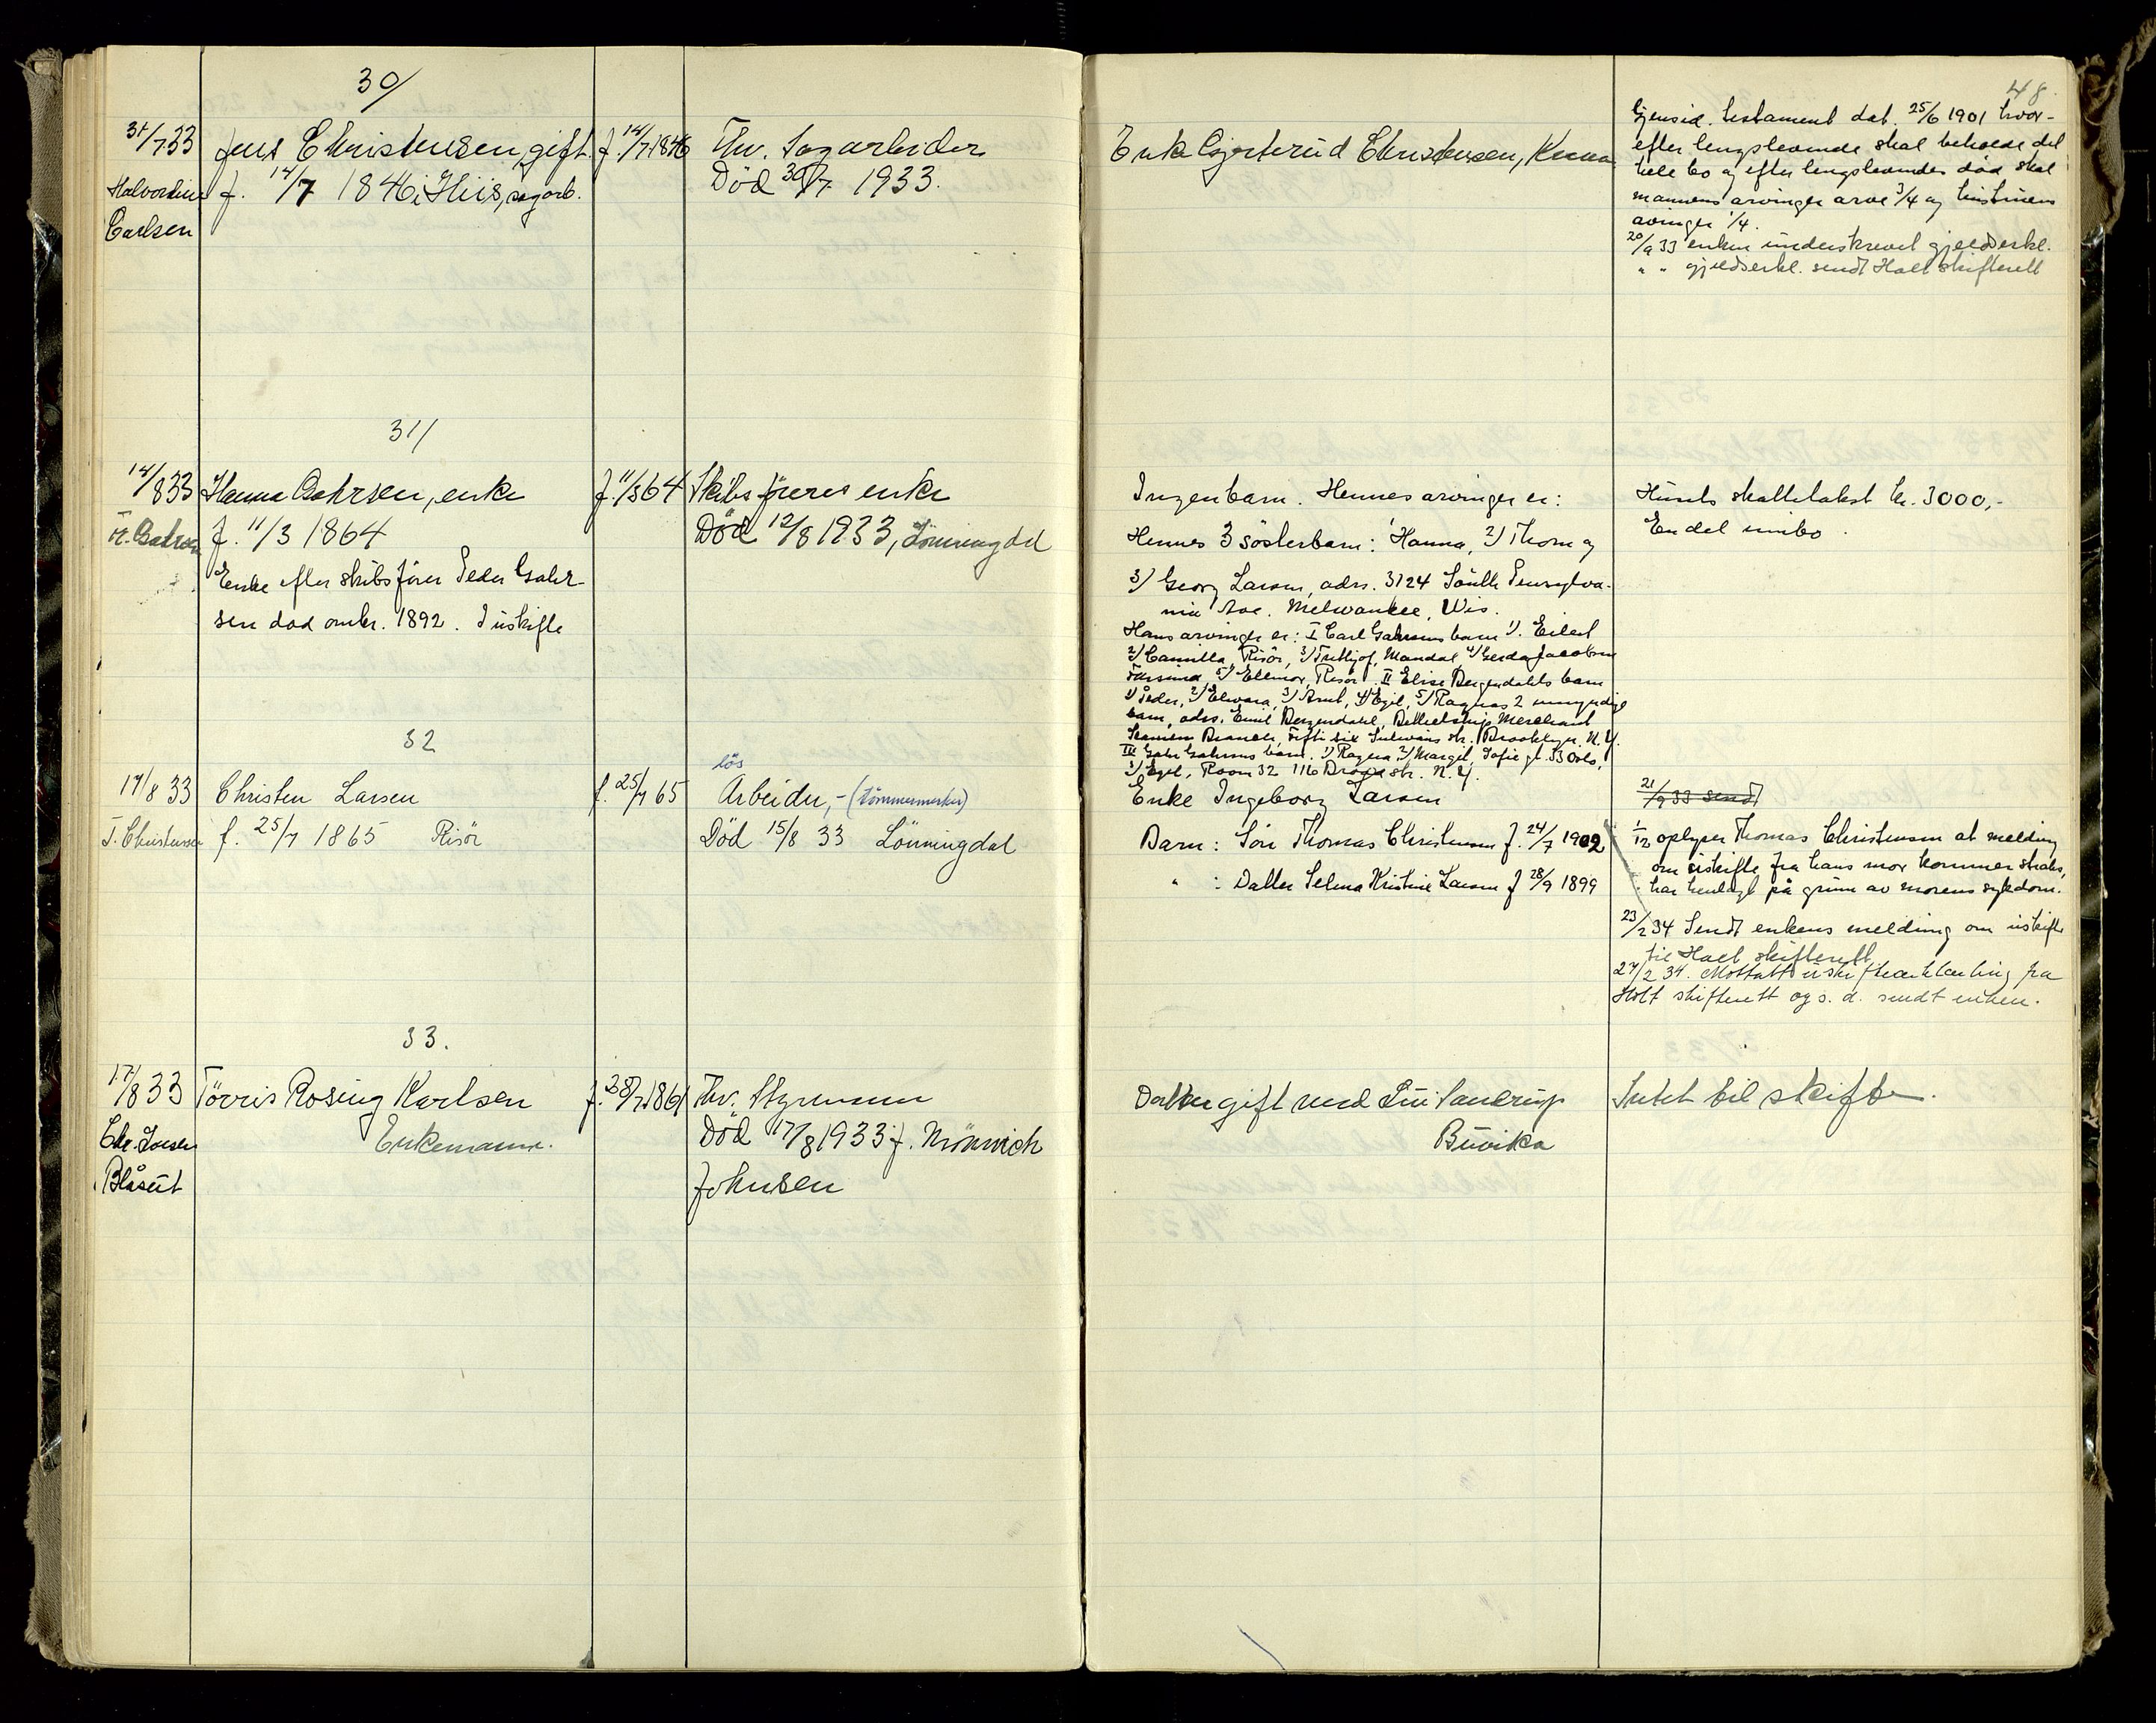 48
30/
31/7 33
Halvordine
Carlsen
Jens Christensen, gift.
f. 14/7 1846 i Hiis, sagarb.
f. 14/7 1846
Fhv. Sagarbeider
Död 30/7 1933.
Enke Gjerterud Christensen,
Gjensid. testament dat. 25/6 1901 hvor-
efter lengstlevende skal beholde det
hele bo og efter lengstlevendes död skal
mannens arvinger arve 3/4 og hustruens
arvinger 1/4.
20/9 33 enken underskrevet gjeldserkl.
" " gjeldserkl. sendt Holt skifterett
31/
14/8 33
Hanna Gahrsen, enke
f. 11/3 1864
Enke efter skibsförer Peder Gahr-
sen död omkr. 1892. Uskifte
f. 11/3 64
Skibsförers enke
Död 12/8 1933, Lönningdal
Ingen barn. Hennes arvinger er:
Hennes 3 sösterbarn: 1 Hanna, 2) Thom og
3) Georg Larsen, adrs. 3124 South Pensylva-
nia Ave. Melwaukee, Wis.
Hans arvinger er: I Carl Gahrsens barn 1). Eilert
2) Camilla, Risör, 3) Fritjof, Mandal 4) Gerda Jacobsen
Farsund, 5) Ellinor, Risör. II Elise Bergendahls barn
1) Peder, 2) Elvara, 3) Arnt, 4) Egil, 5) Ragnas 2 umyndige
barn, adrs. Emil Bergendahl, Merchant
Seamen Branch, fifti six str. Brooklyn. N.Y.
III Gahr Gahrsens barn. 1) Ragna, 2) Margit, Sofie gt. 53 Oslo,
3) Egil, Room 32 116 Broad str. N.Y.
Husets skattetakst kr. 3000,-
En del innbo.
32
17/8 33
T. Christensen
Christen Larsen
f. 25/7 1865 Risör
f. 25/7 65
lös
Arbeider,- (tömmermerker)
Död 15/8 33 Lönningdal
Enke Ingeborg Larsen
Barn: Sön Thomas Christensen f. 24/7 1902
" : Datter Selma Kristine Larsen f 28/9 1899
21/9 33 sendt
1/12 oplyser Thomas Christensen at melding
om uskifte fra hans mor kommer straks,
har henlagt på grunn av morens sykdom.
23/2 34 Sendt enkens melding om uskifte
til Holt skifterett
27/2 34. Mottatt uskifteerklæring fra
Holt skifterett og s. d. sendt enken.
33.
17/8 33
Chr. Joensen
Blåsut
Törris Rosing Karlsen
Enkemann.
f. 28/7 1861
Fhv. Styrmann
Död 17/8 1933 f.
Johnsen
Datter gift med Sandrup
Buvika
Intet til skifte.